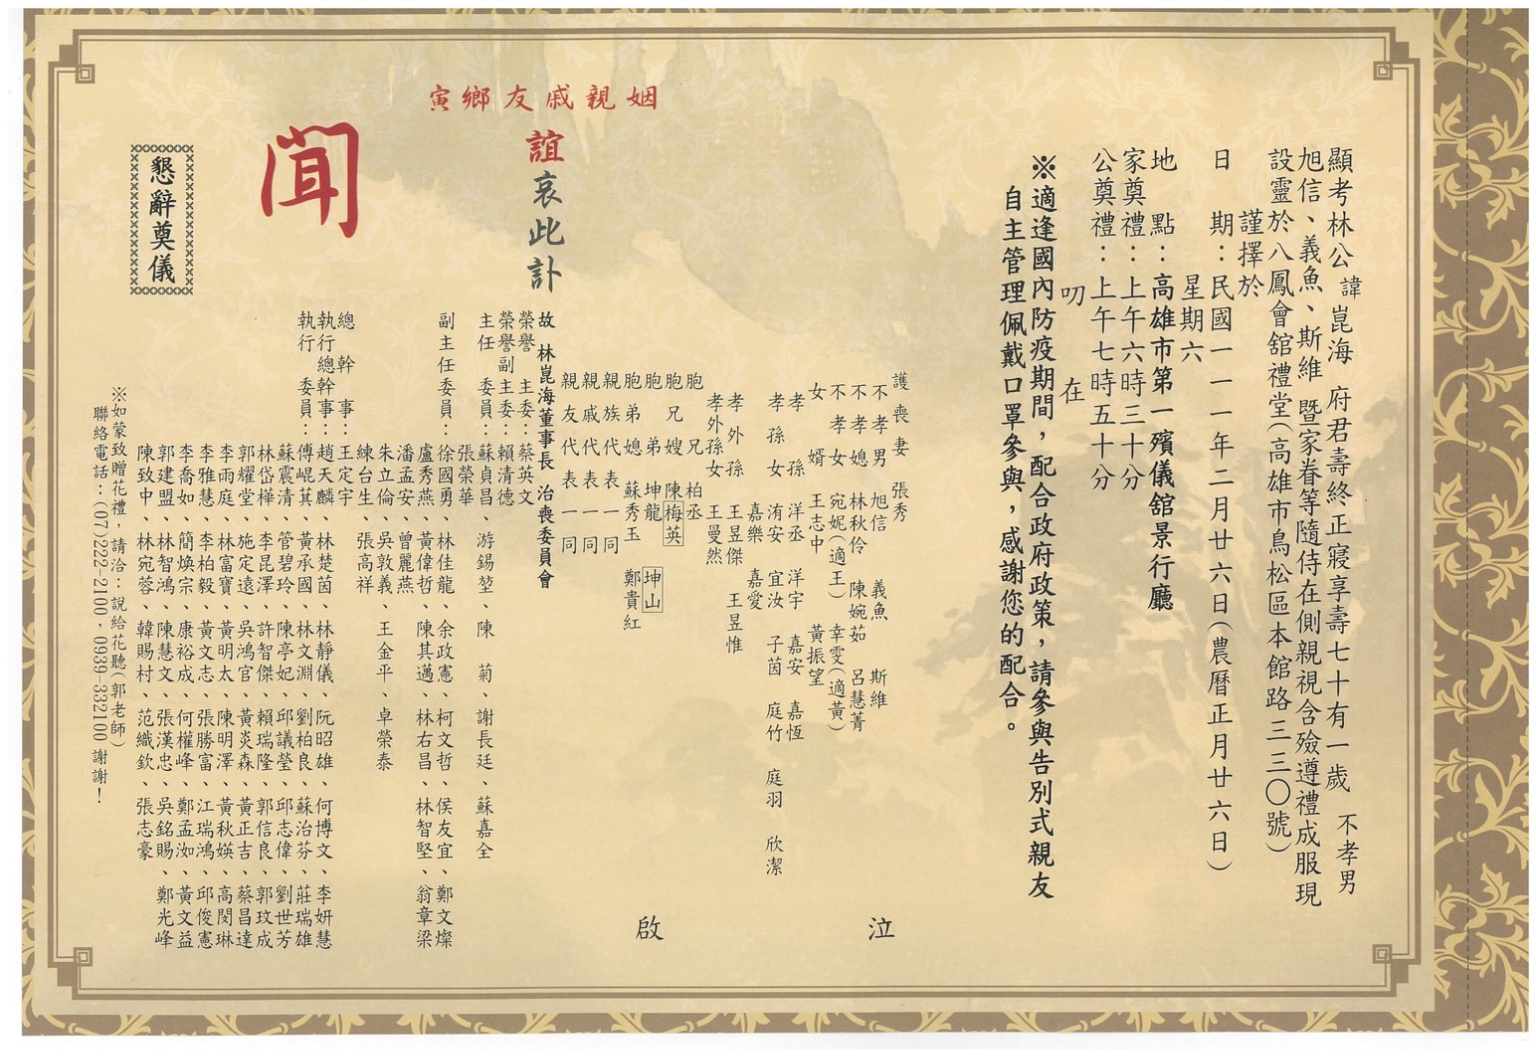 顯考林公諱崑海 府君壽終正寢享壽七十有一歲 不孝男
旭信、義魚、斯維 暨家眷等隨侍在側親視含殮遵禮成服現
設靈於八鳳會舘禮堂(高雄市鳥松區本館路三三〇號)
謹擇於
日 期：民國一一一年二月廿六日(農曆正月廿六日)
星期六
地 點：高雄市第一殯儀舘景行廳
家奠禮：上午六時三十分
公奠禮：上午七時五十分
叨 在
※適逢國內防疫期間，配合政府政策，請參與告別式親友
自主管理佩戴口罩參與，感謝您的配合。
姻親戚友鄉寅
誼哀此訃
聞
懇辭奠儀
護喪妻 張秀
不孝男 旭信 義魚 斯維
不孝媳 林秋伶 陳婉茹 呂慧菁
不孝女 宛妮(適王) 幸雯(適黃)
女 婿 王志中 黃振望
孝 孫 洋丞 洋宇 嘉安 嘉恆
孝孫女 洧安 宜汝 子茵 庭竹 庭羽 欣潔
嘉樂 嘉愛
孝外孫 王昱傑 王昱惟
孝外孫女 王曼然
胞 兄 柏丞
胞兄嫂 陳梅英
胞 弟 坤龍 坤山
胞弟媳 蘇秀玉 鄭貴紅
親族代表一同
親戚代表一同
親友代表一同
泣
啟
故 林崑海董事長 治喪委員會
榮譽 主委：蔡英文
榮譽副主委：賴清德
主任 委員：蘇貞昌、游錫堃、陳 菊、謝長廷、蘇嘉全
張榮華
副主任委員：徐國勇、林佳龍、余政憲、柯文哲、侯友宜、鄭文燦
盧秀燕、黃偉哲、陳其邁、林右昌、林智堅、翁章梁
潘孟安、曾麗燕
朱立倫、吳敦義、王金平、卓榮泰
練台生、張高祥
總 幹 事：王定宇
執行總幹事：趙天麟、林楚茵、林靜儀、阮昭雄、何博文、李妍慧
執行 委員：傅崐萁、黃承國、林文淵、劉柏良、蘇治芬、莊瑞雄
蘇震清、管碧玲、陳亭妃、邱議瑩、邱志偉、劉世芳
林岱樺、李昆澤、許智傑、賴瑞隆、郭信良、郭玟成
郭耀堂、施定遠、吳鴻官、黃炎森、黃正吉、蔡昌達
李雨庭、林富寶、黃明太、陳明澤、黃秋媖、高閔琳
李雅慧、李柏毅、黃文志、張勝富、江瑞鴻、邱俊憲
李喬如、簡煥宗、康裕成、何權峰、鄭孟洳、黃文益
郭建盟、林智鴻、陳慧文、張漢忠、吳銘賜、鄭光峰
陳致中、林宛蓉、韓賜村、范織欽、張志豪
※如蒙致贈花禮，請洽：說給花聽(郭老師)
聯絡電話：(07)222-2100，0939-332100 謝謝！